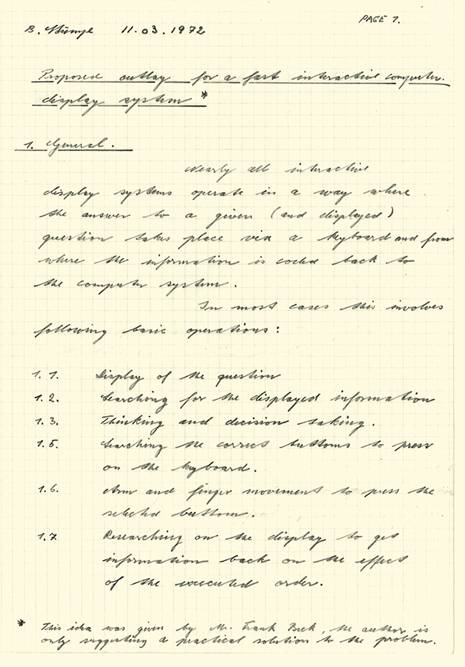 PAGE 1.
B. Stumpe 11.03.1972
Proposed outlay for a fast interactive computer.
display system *
1. General.
Nearly all interactive
display systems operate in a way where
the answer to a given (and displayed)
question takes place via a keyboard and from
where the information is coded back to
the computer system.
In most cases this involves
following basic operations:
1.1. Display of the question
1.2. Searching for the displayed information
1.3. Thinking and decision taking.
1.5. Searching the correct buttoms to press
on the keyboard.
1.6. Arm and finger movement to press the
selected buttom.
1.7 Researching on the display to get
information back on the effect
of the executed order.
* This idea was given by Mr. Frank Beck, the author is
only suggesting a practical solution to the problem.